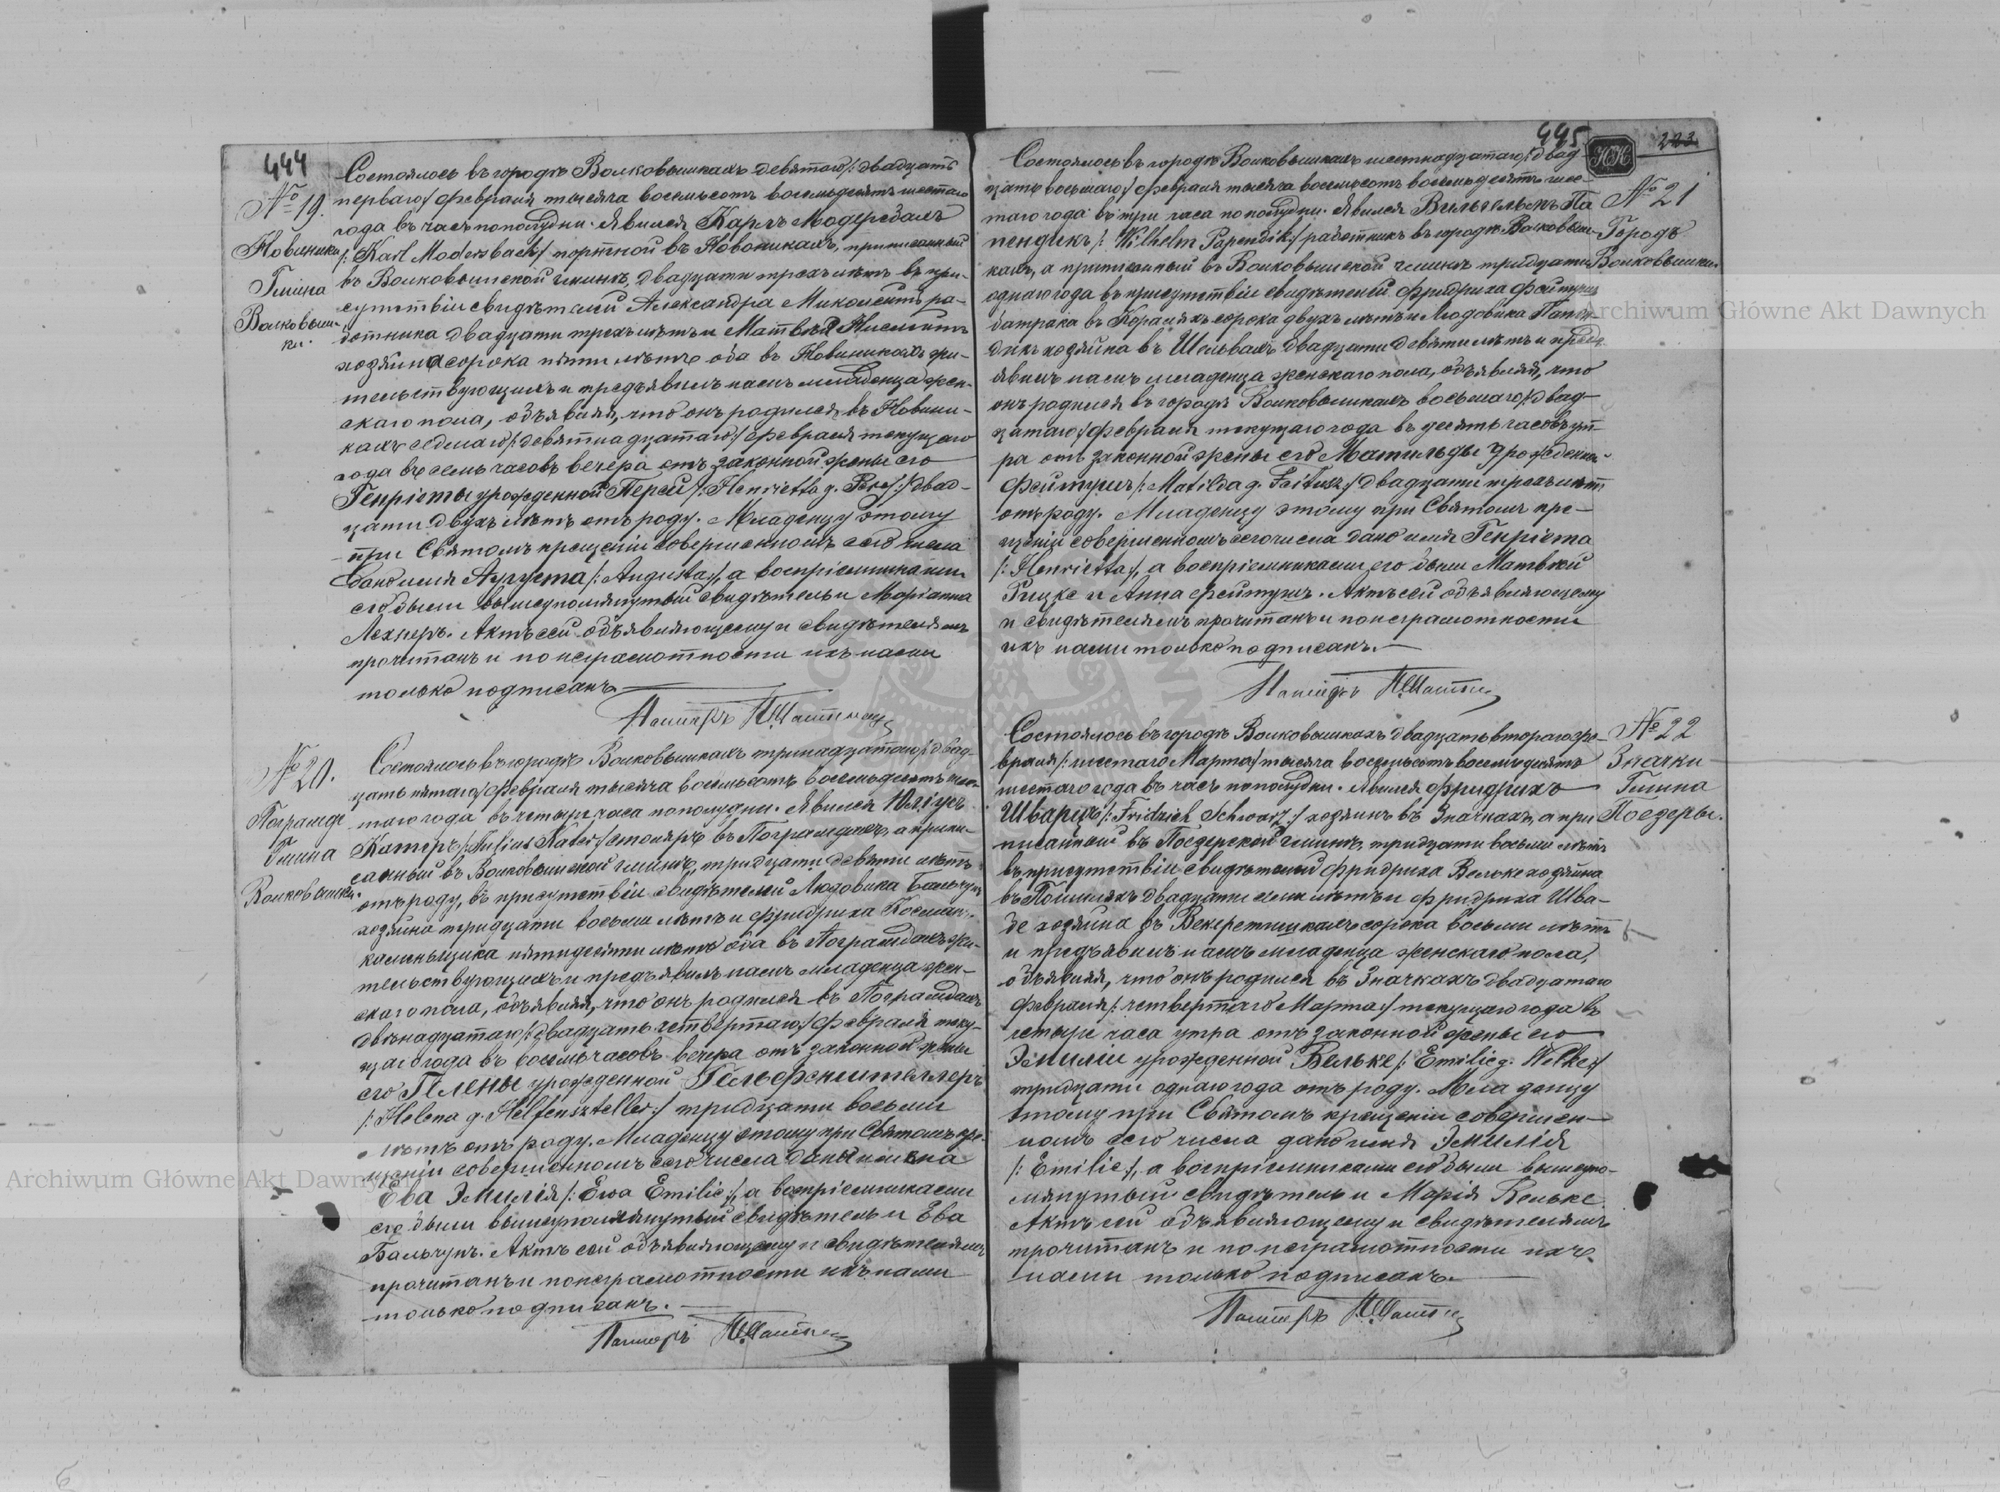 444
№ 19.
Новиники
Гмина
Волковыш-
ки.
Состоялось въ городѣ Волковышкахъ девятаго /: двадцать
перваго :/ февраля тысяча восемьсотъ восемьдесятъ шестаго
года въ часъ пополудни. Явился Карлъ Модерсбахъ
/: Karl Modersbach :/ портной въ Новоникахъ, приписанный
въ Волковышской гминѣ, двадцати трехъ лѣтъ въ при-
сутствіи свидѣтелей Александра Миколейтъ ра-
ботника двадцати трехъ лѣтъ и Матвѣя
хозяина сорока пяти лѣтъ оба въ Новиникахъ жи-
тельствующихъ и предъявилъ намъ младенца жен-
скаго пола, объявляя, что онъ родился въ Новини-
кахъ седьмаго /: девятнадцатаго :/ февраля текущаго
года въ семь часовъ вечера отъ законной жены его
Генріеты урожденной Перей /: Henrietta g. :/ двад-
цати двухъ лѣтъ отъ роду. Младенцу этому
при Святомъ крещеніи совершенномъ сего числа
дано имя Августа /: Augusta :/, а воспріемниками
его были вышеупомянутый свидѣтель и Маріанна
Лехнеръ. Актъ сей объявляющему и свидѣтелямъ
прочитанъ и по неграмотности ихъ нами
только подписанъ.
Пасторъ
№ 20.
Гмина
Волковышки.
Состоялось въ городѣ Волковышкахъ тринадцатаго /: двад-
цать пятаго :/ февраля тысяча восемьсотъ восемьдесятъ шес-
таго года въ четыре часа пополудни. Явился Юліусъ
Катеръ /: Julius Kater :/ столяръ въ Пограмдахъ, а припи-
санный въ Волковышской гминѣ, тридцати девяти лѣтъ
отъ роду, въ присутствіи свидѣтелей Людовика Бальчунъ
хозяина тридцати восьми лѣтъ и Фридриха
каменьщика пятидесяти лѣтъ оба въ Пограмдахъ жи-
тельствующихъ и предъявилъ намъ младенца жен-
скаго пола, объявляя, что онъ родился въ Пограмдахъ
двѣнадцатаго /: двадцать четвертаго :/ февраля теку-
щаго года въ восемь часовъ вечера отъ законной жены
его Гелены урожденной Гельфенштеллеръ
/: Helena g. Helfenszteller :/ тридцати восьми
лѣтъ отъ роду. Младенцу этому при Святомъ кре-
щеніи совершенномъ сего числа даны имена
Ева Эмилія /: Ewa Emilie :/, а воспріемниками
его были вышеупомянутый свидѣтель и Ева
Бальчунъ. Актъ сей объявляющему и свидѣтелямъ
прочитанъ и по неграмотности ихъ нами
только подписанъ.
Пасторъ
445
НК
223
№ 21
Городъ
Волковышки
Состоялось въ городѣ Волковышкахъ шестнадцатаго /: двад-
цать восьмаго :/ февраля тысяча восемьсотъ восемьдесятъ шес-
таго года въ три часа пополудни. Явился Вильгельмъ Па-
пендикъ /: Wilhelm Papendik :/ работникъ въ городѣ Волковыш-
кахъ, а приписанный въ Волковышской гминѣ тридцати
одного года въ присутствіи свидѣтелей Фридриха Фейтушъ
батрака въ сорока двухъ лѣтъ и Людовика Папен-
дикъ хозяина въ Шельвахъ двадцати девяти лѣтъ и предъ-
явилъ намъ младенца женскаго пола, объявляя, что
онъ родился въ городѣ Волковышкахъ восьмаго /: двад-
цатаго :/ февраля текущаго года въ десять часовъ ут-
ра отъ законной жены его Матильды урожденной
Фейтушъ /: Matilda g. Feitusz :/ двадцати трехъ лѣтъ
отъ роду. Младенцу этому при Святомъ кре-
щеніи совершенномъ сего числа дано имя Генріета
/: Henrietta :/, а воспріемниками его были Матвѣй
Рицке и Анна Фейтушъ. Актъ сей объявляющему
и свидѣтелямъ прочитанъ и по неграмотности
ихъ нами только подписанъ.
Пасторъ
№ 22
Значки
Гмина
Поедеры.
Состоялось въ городѣ Волковышкахъ двадцать втораго фе-
враля /: шестаго Марта :/ тысяча восемьсотъ восемьдесятъ
шестаго года въ часъ пополудни. Явился Фридрихъ
Шварцъ /: Fridrich Schwarz :/ хозяинъ въ Значкахъ, а при-
писанный въ Поедерской гминѣ, тридцати восьми лѣтъ
въ присутствіи свидѣтелей Фридриха Вельке хозяина
въ двадцати семи лѣтъ и Фридриха Шва-
де хозяина въ сорока восьми лѣтъ
и предъявилъ намъ младенца женскаго пола,
объявляя, что онъ родился въ Значкахъ двадцатаго
февраля /: четвертаго Марта :/ текущаго года въ
четыре часа утра отъ законной жены его
Эмиліи урожденной Вельке /: Emilie g. Welke :/
тридцати одного года отъ роду. Младенцу
этому при Святомъ крещеніи совершен-
номъ сего числа дано имя Эмилія
/: Emilie :/, а воспріемниками его были вышеупо-
мянутый свидѣтель и Марія Вельке.
Актъ сей объявляющему и свидѣтелямъ
прочитанъ и по неграмотности ихъ
нами только подписанъ.
Пасторъ
Archiwum Główne Akt Dawnych
Archiwum Główne Akt Dawnych